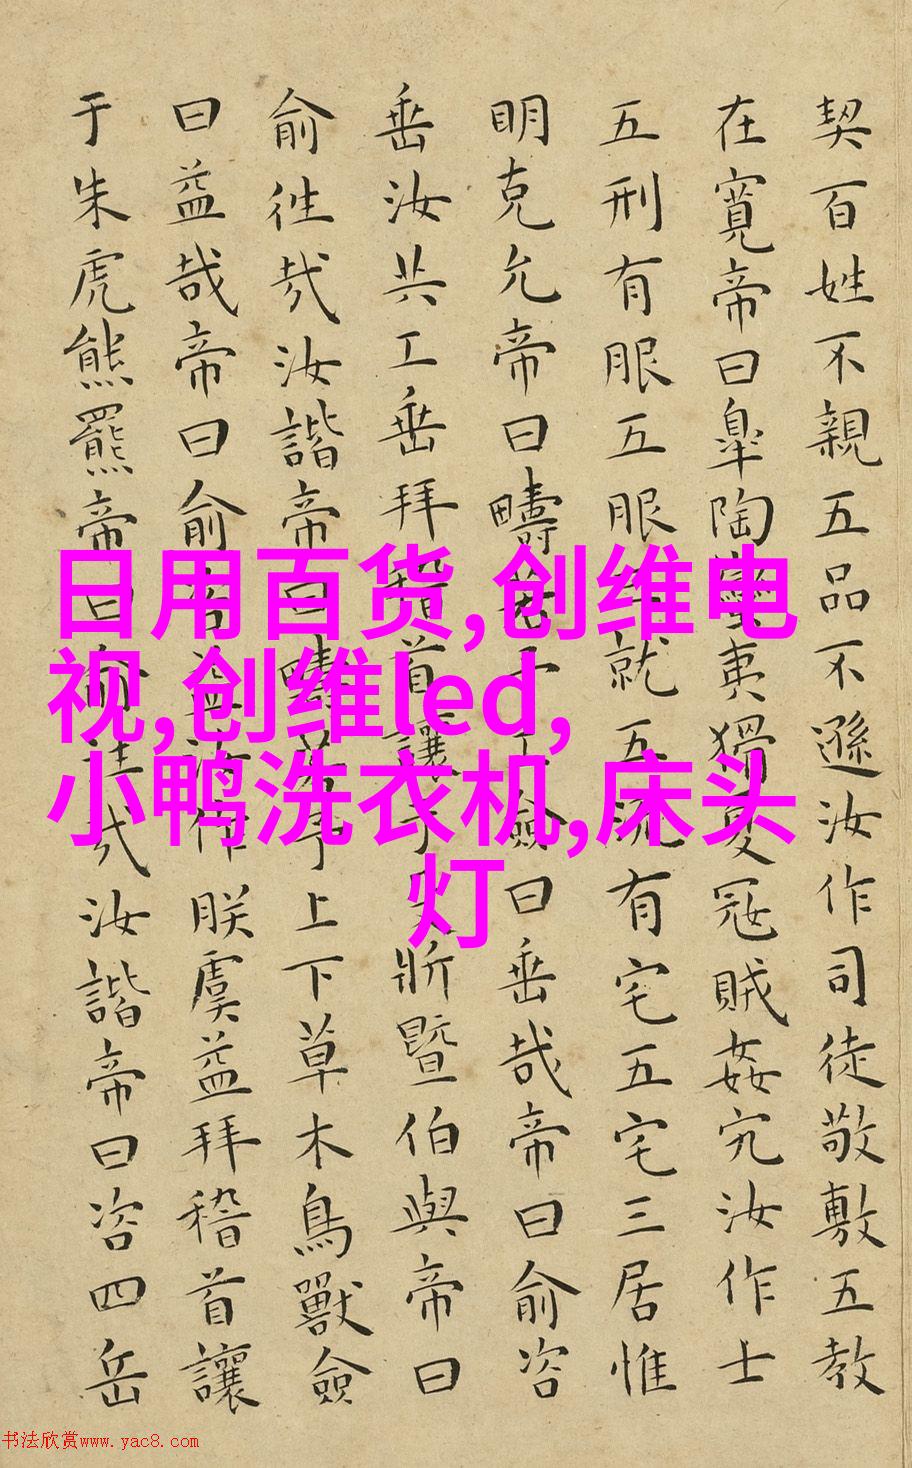 契百姓不親五品不遜汝作司徒敬敷五教
在寬帝曰皐陶蠻夷猾夏冦賊姦宄汝作士
五刑有服五服三就五流有宅五宅三居惟
明克允帝曰疇若予工僉曰垂哉帝曰俞咨
垂汝共工垂拜稽首讓于殳斨暨伯與帝曰
俞往哉汝諧帝曰疇若予上下草木鳥獸僉
曰益哉帝曰俞咨益汝作朕虞益拜稽首讓
于朱虎熊羆帝曰俞往哉汝諧帝曰咨四岳
日用百货,创维电
视,创维led,
小鸭洗衣机,床头
灯
书法欣赏www.yac8.com